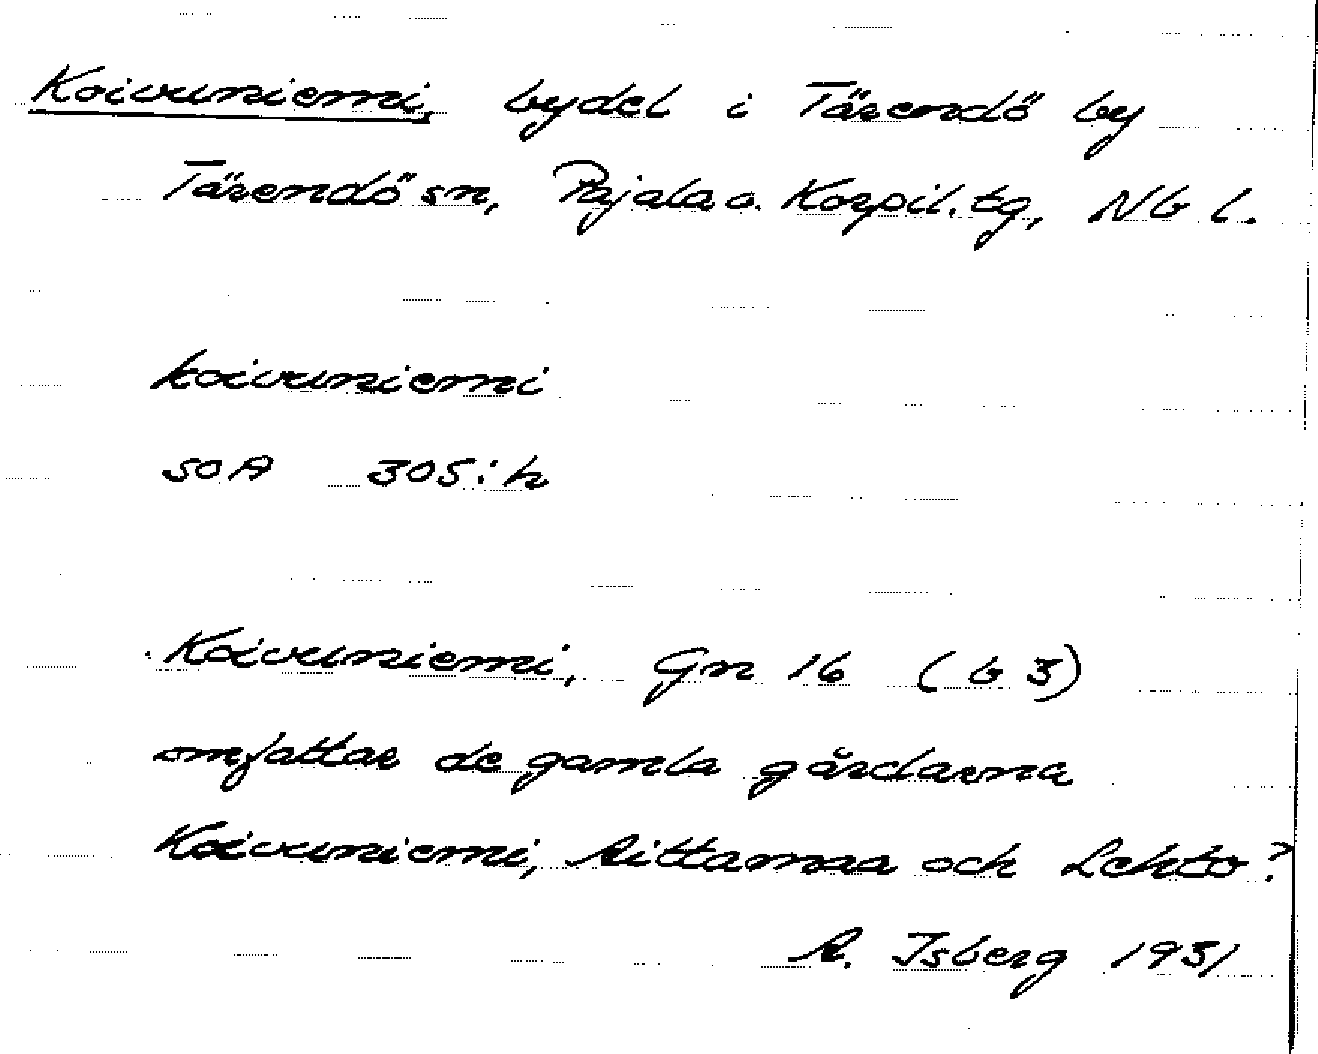 Koivuniemi, bydel i Tärendö by
Tärendö sn, Pajala o. Korpil. tg, Nb l.
koivuniemi
SOA 305:h
Koivuniemi, Gn 16 (b 3)
omfattar de gamla gårdarna
Koivuniemi, Rittamaa och Lehto?
A. Isberg 1931